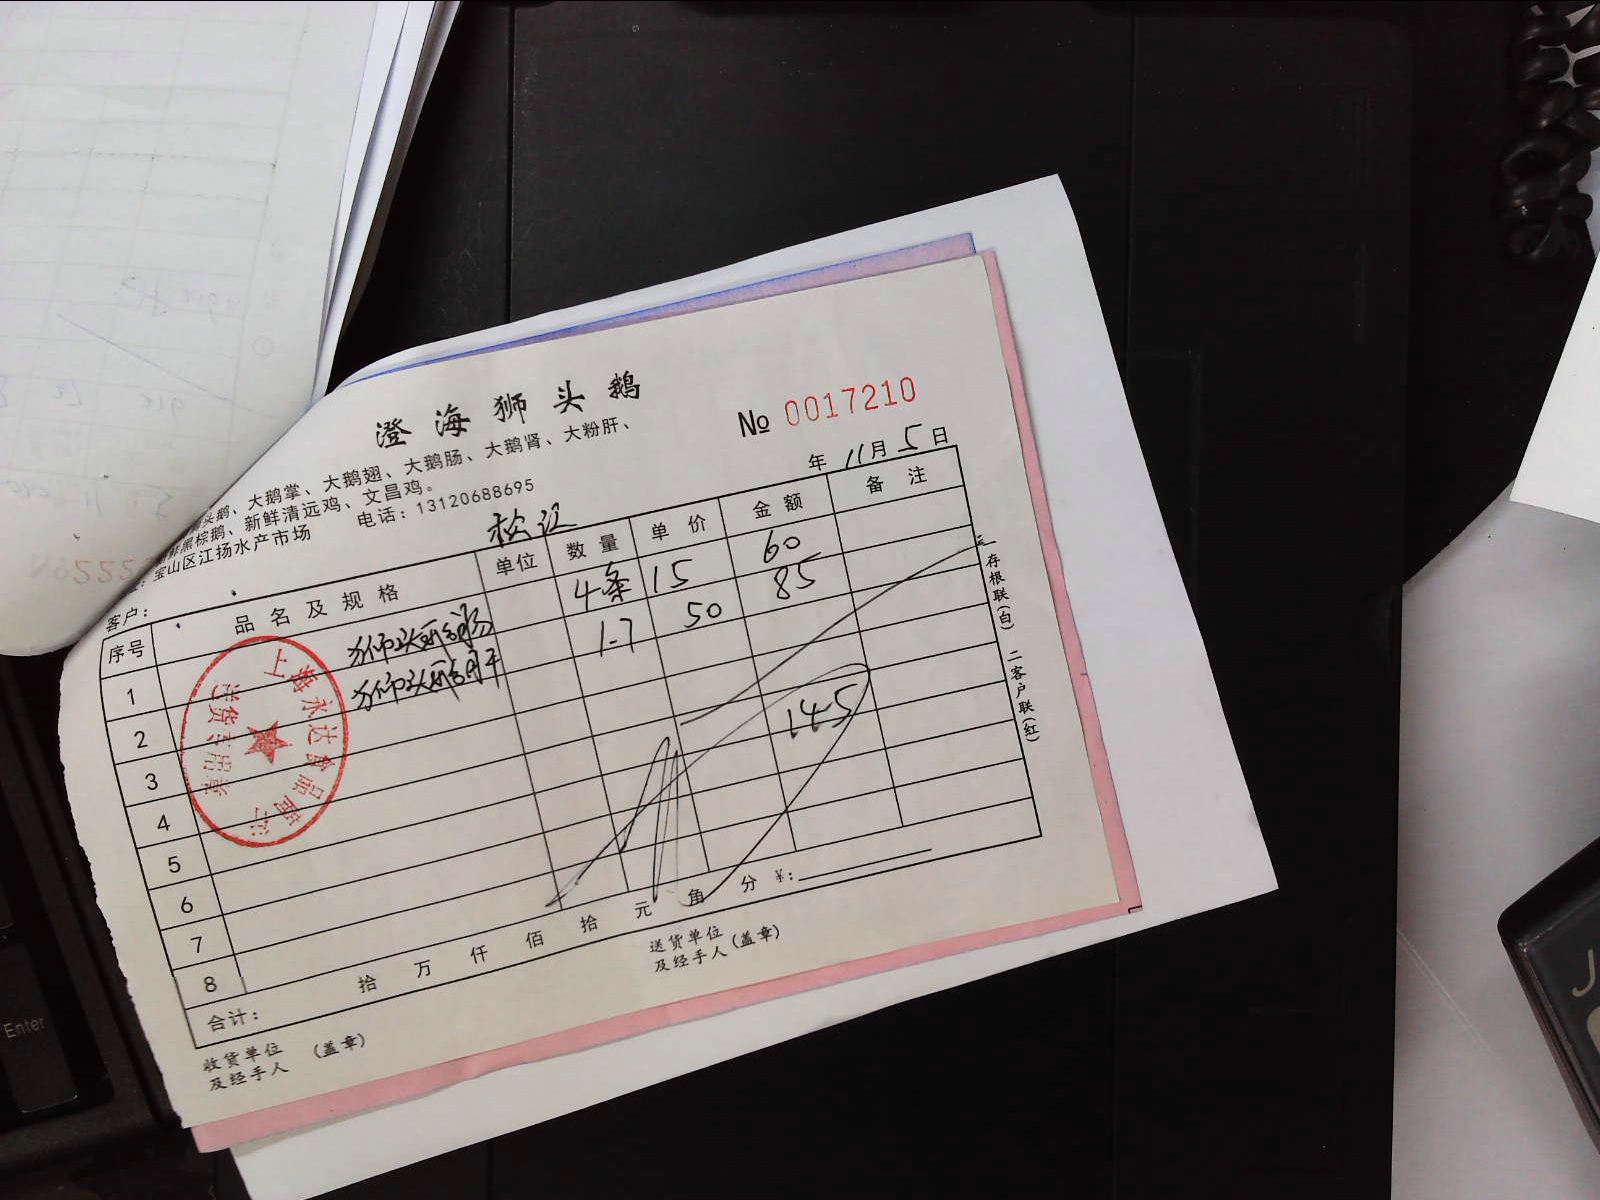 澄海狮头鹅
№ 0017210
头鹅、大鹅掌、大鹅翅、大鹅肠、大鹅肾、大粉肝、
黑棕鹅、新鲜清远鸡、文昌鸡。
宝山区江扬水产市场 电话：13120688695
年 11月 5日
客户： 松江
序号 品名及规格 单位 数量 单价 金额 备注
1 狮头鹅肠 4条 15 60
2 狮头鹅肝 1.7 50 85
3
4
5 145
6
7
8
合计： 拾 万 仟 佰 拾 元 角 分 ¥:
收货单位 (盖章) 送货单位
及经手人 及经手人 (盖章)
一存根联(白) 二客户联(红)
上海永达食品商行
送货专用章
Enter
J